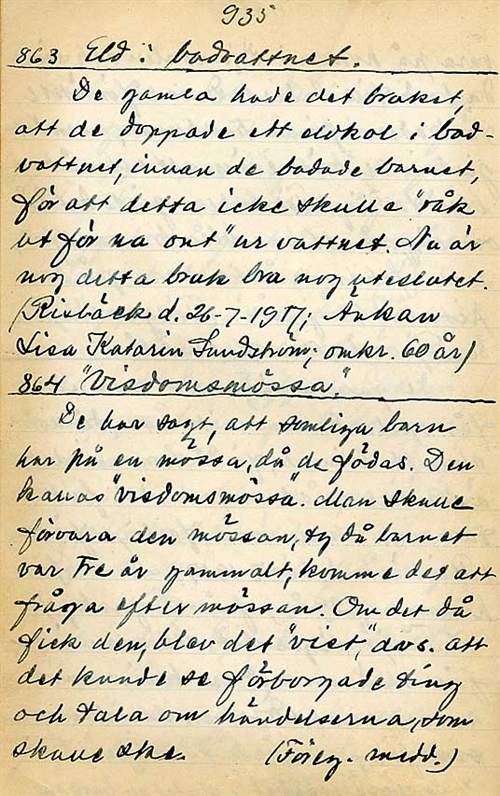 935
863 Eld i badvattnet.
De gamla hade det bruket,
att de doppade ett eldkol i bad-
vattnet, innan de badade barnet,
för att detta icke skulle "råk
ut för na ont" ur vattnet. Nu är
nog detta bruk bra nog uteslutet.
(Risbäck d. 26-7-1917; Änkan
Lisa Katarin Lundström; omkr. 60 år)
864 "Visdomsmössa."
De har sagt, att somliga barn
har på en mössa, då de födas. Den
kallas "visdomsmössa". Man skulle
förvara den mössan, ty då barnet
var Tre år gammalt, komme det att
fråga efter mössan. Om det då
fick den, blev det "vist," dvs. att
det kunde se förborgade ting
och tala om händelserna, som
skulle ske. (Föreg. medd.)